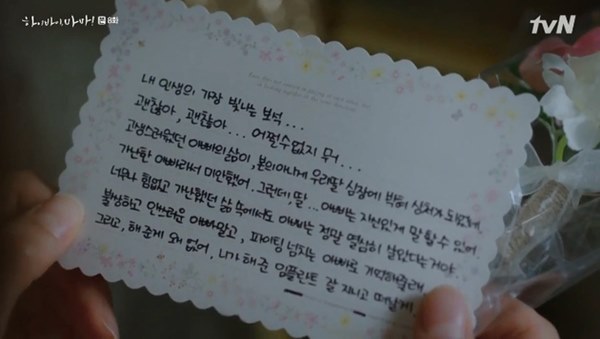 하이바이, 마마! 본 8화
tvN
내 인생의 가장 빛나는 보석...
괜찮아, 괜찮아... 어쩔수없지 뭐...
고생스러웠던 아빠의 삶이, 본의아니게 우리딸 심장에 박혀 상처가 되었네.
가난한 아빠라서 미안했어, 그런데, 딸... 아빠는 자신있게 말 할 수 있어
너무나 힘없고 가난했던 삶 속에서도 아빠는 정말 열심히 살았다는거야.
불쌍하고 안쓰러운 아빠말고, 파이팅 넘치는 아빠로 기억해줄래
그리고, 해 준게 왜 없어, 니가 해 준 임플란트 잘 지니고 떠날게.